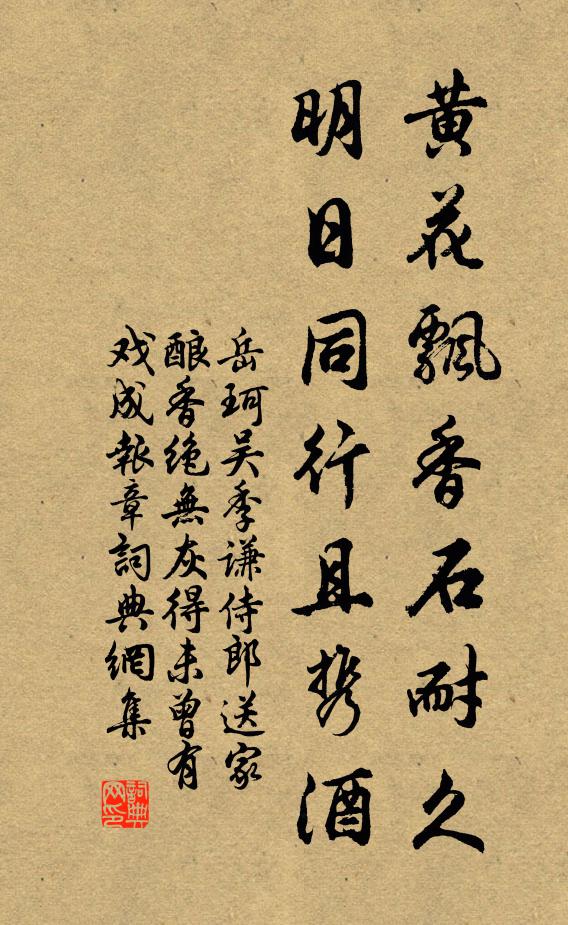 黄花飄香石耐久
明日同行且携酒
岳珂吴季谦侍郎送家
酿香绝無灰得未曾有
戏成報章詞典網集
詞典网印